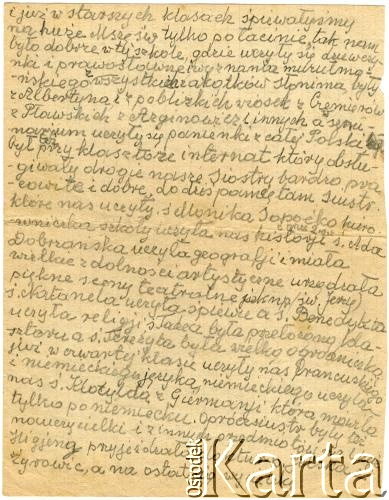 i już w starszych klasach śpiewałyśmy
na hurze Mszę św. tylko po łacinie, tak nam
było dobrze w tej szkole, gdzie uczyły się dziewczyn
nki i prawosławnej wyznania
ze wszystkich zakątków Słonima były
z Albertyna i z pobliskich wiosek z Czemierów
z Pławskich z i innych a semi
narium uczyły się panienki z całej Polski
był przy klasztorze internat który obsłu
giwały drogie nasze Siostry bardzo pra
cowite i dobre, do dziś pamiętam siostr.
które nas uczyły, s Monika Sopoćko kiero
wniczka szkoły uczyła nas historji s. Ada
Dobrzańska uczyła geografji i miała
wielkie zdolności artystyczne urządzała
piękne sceny teatralne np. (św. Jerzy)
s. Natanela uczyła śpiewu a s. Benedykta
uczyła religji, s Tadea była przełożoną kla
sztoru a s. Tereżyta była wielką ogrodniczką
już w czwartej klasie uczyły nas francuskiego
i niemieckiego języka, niemieckiego uczyła
nas s. Klotylda z Giermanji która mówiła
tylko po niemiecku. Oprócz siostr były też
nauczycielki z innych przedmiotów
Higjenę przyjeżdżała
Żyrowic, a na ostatni
Ośrodek
Karta